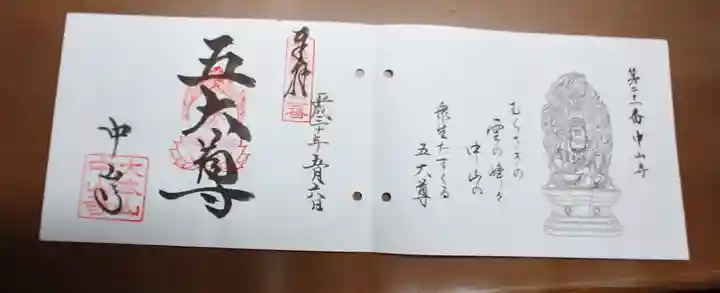 第二十一番 中山寺
むらさきの
雲の峰か
中山の
衆生たすくる
五大尊
奉拝
平成二十年五月六日
五大尊
中山寺